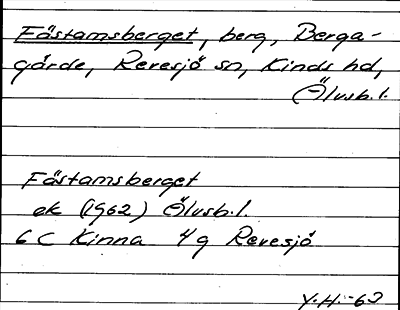 Fästamsberget, berg, Berga-
gärde, Revesjö sn, Kinds hd,
Älvsb.l.
Fästamsberget
ek (1962) Älvsb.l.
6 C Kinna 4 g Revesjö
Y.H.-63